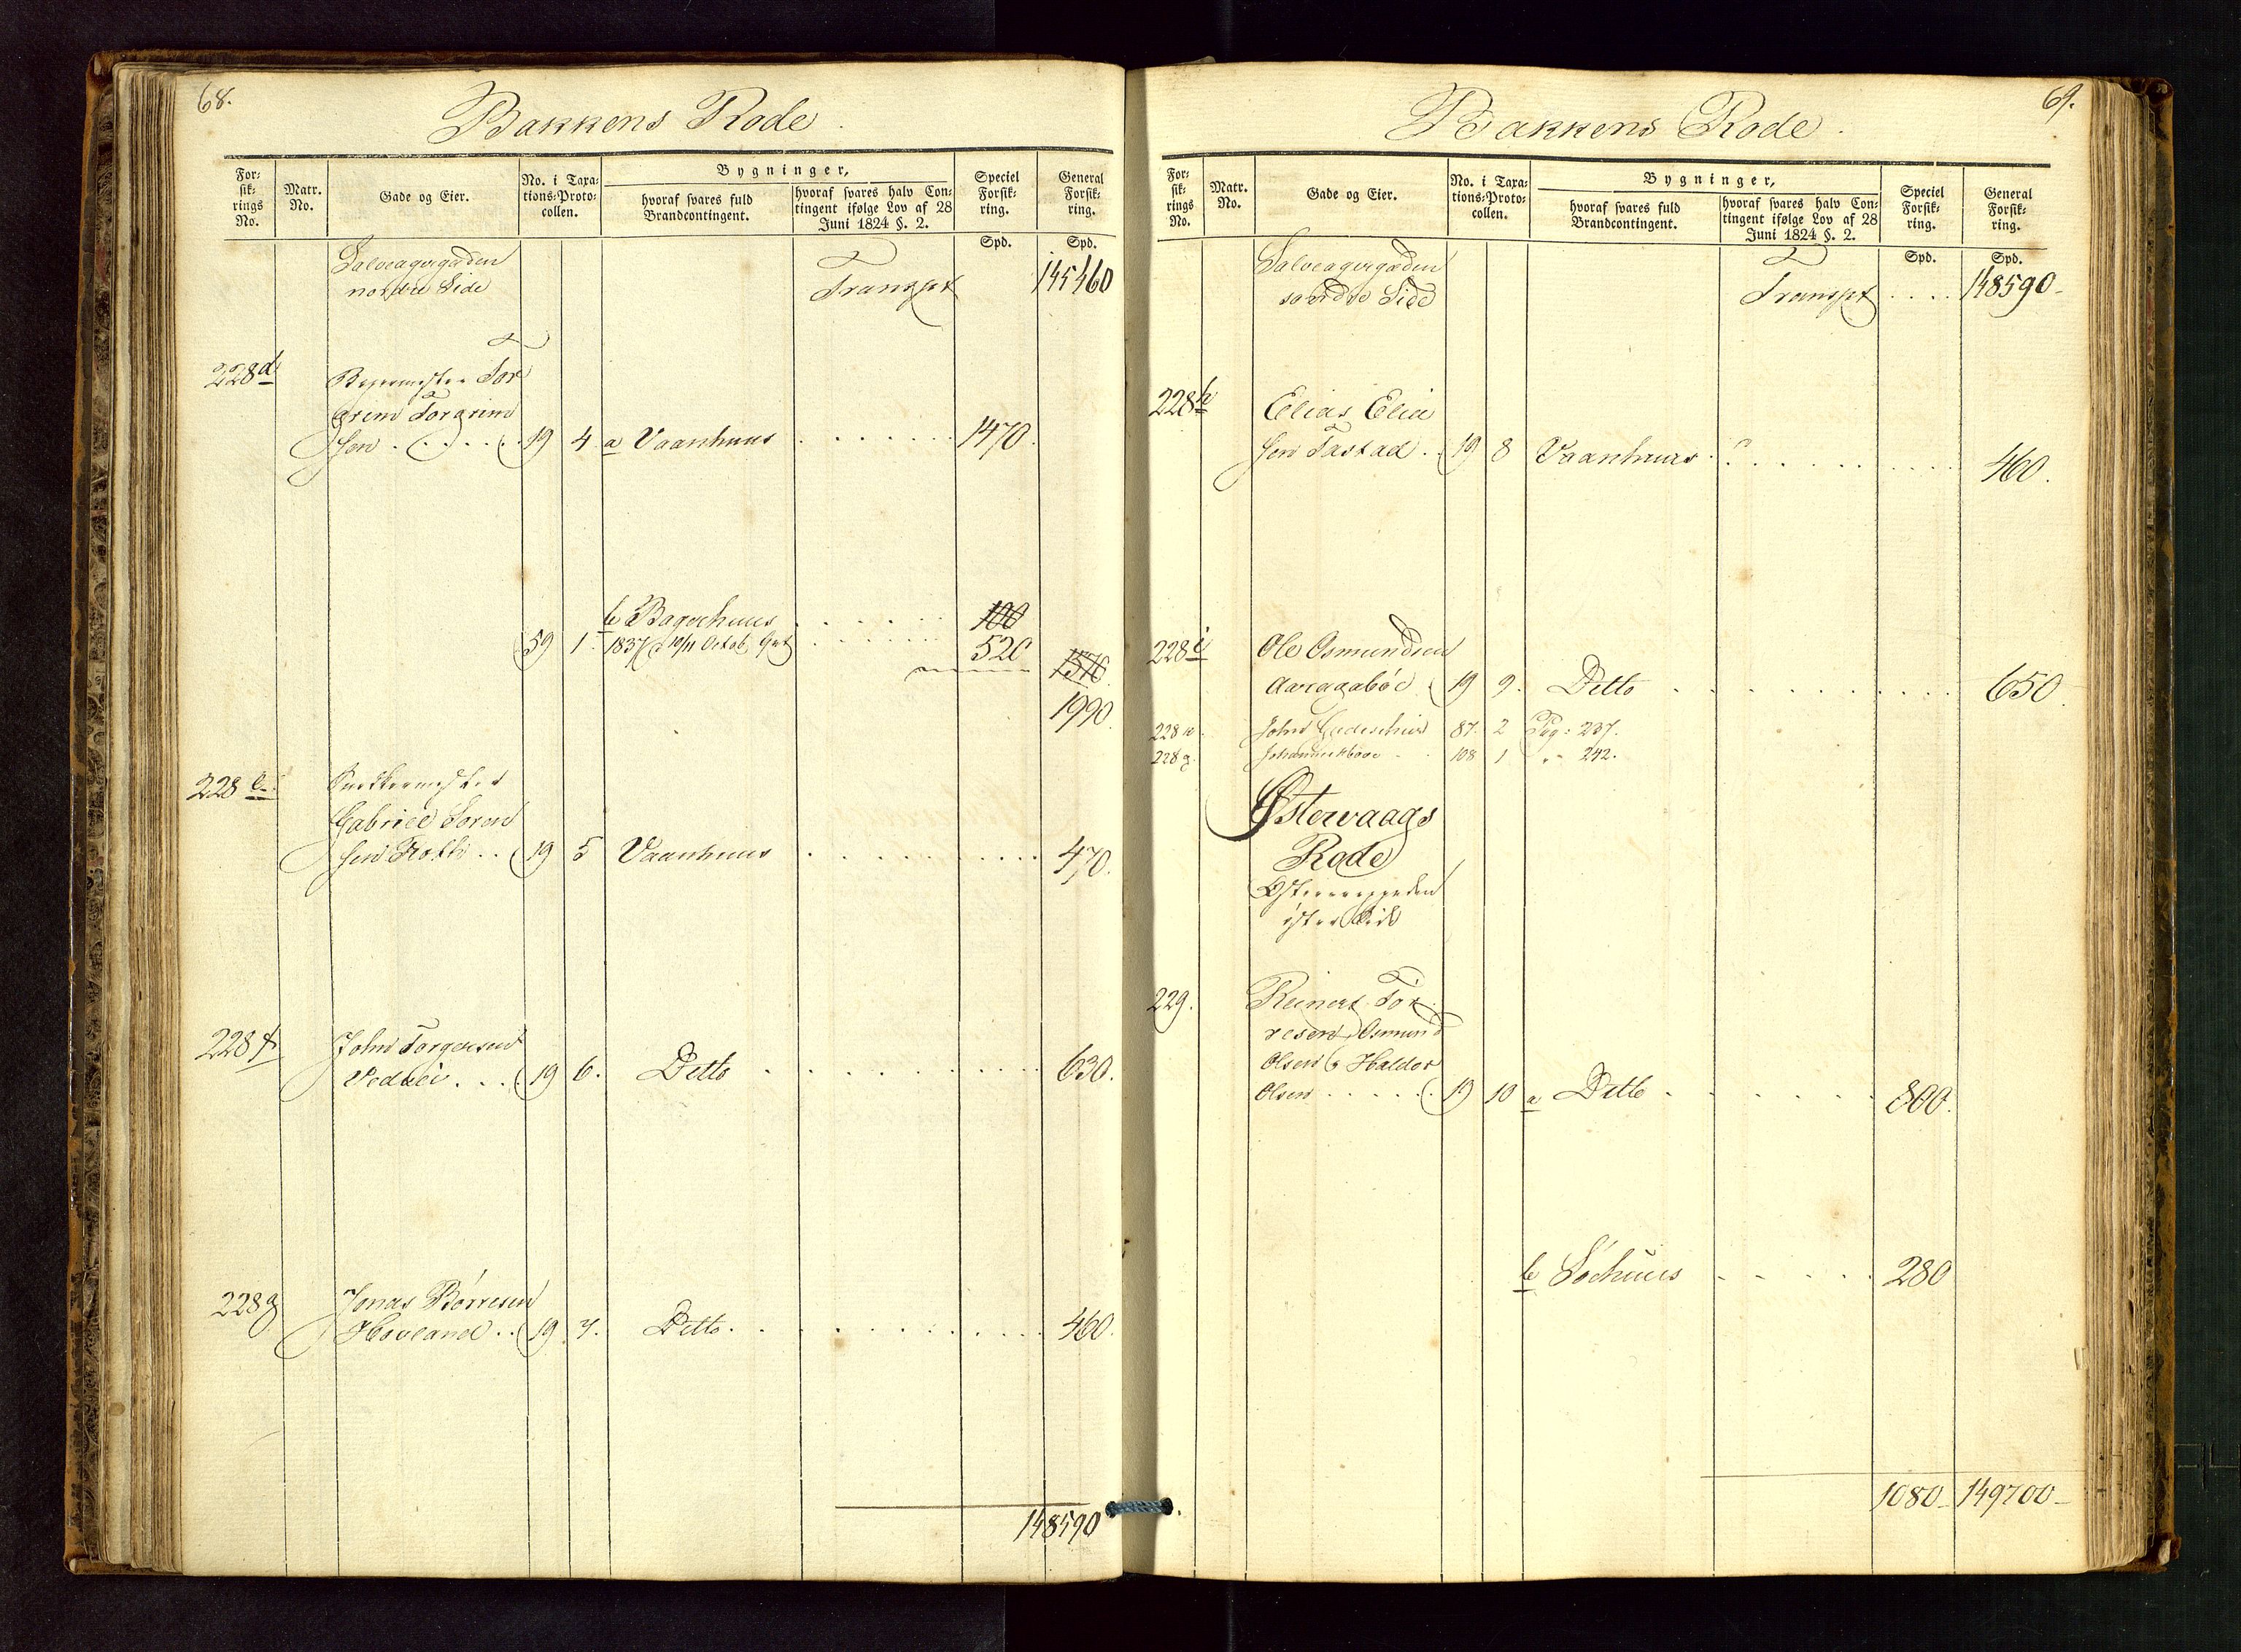 68.
Bakkens Rode.
For:
sik:
rings
No.
Matr.
No.
Gade og Eier.
No. i Taxa:
tions:Proto:
collen.
Bygninger,
hvoraf svares fuld
Brandcontingent.
hvoraf svares halv Con:
tingent ifølge Lov af 28
Juni 1824 §. 2.
Speciel
Forsik:
ring.
General
Forsik:
ring.
Spd.
Spd.
Salveagergaden
nordre Side
Transpt
145460
228d
Tor
grim Torgrim
sen . . . . 19 4. a Vaanhuus . . . . . . 1470.
b Bagerhuus . . . . . . 100
59 1. 1837 10/11 Octob. . . . . . 520
1570.
1990.
228e.
Snedkermester
Gabriel Soren
sen . . 19 5 Vaanhuus . . . . . . . . 470.
228f
John Torgersen
. . . 19 6. Ditto . . . . . . . . 630.
228g
Jonas Börresen
Hovland . . 19 7. Ditto. . . . . . . . 460.
148590
69.
Bakkens Rode.
For:
sik:
rings
No.
Matr.
No.
Gade og Eier.
No. i Taxa:
tions:Proto:
collen.
Bygninger,
hvoraf svares fuld
Brandcontingent.
hvoraf svares halv Con:
tingent ifølge Lov af 28
Juni 1824 §. 2.
Speciel
Forsik:
ring.
General
Forsik:
ring.
Spd.
Spd.
Salveagergaden
söndre Side
Transpt . . . . 148590-
228h
Elias Elia
sen Tastad . . 19 8 Vaanhuus . . . . . . . . 460.
228i
Ole Osmundsen
19 9. Ditto . . . . . . . . 650.
John 87. 2 Pag: 237.
108 1 " - 242.
Østervaags
Rode
öster Side
229.
Reinert Tor
resen, Osmund
Olsen & Haldor
Olsen . . . . . 19 10 a Ditto . . . . . . 800.
b Söehuus . . . . . 280
1080- 149700-